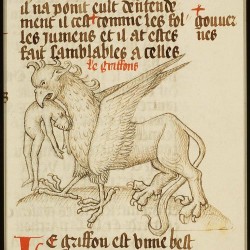 il na point eult dentende
ment il est comme les fol
les jumens et il at estes
fait samblables a celles
gouuer
nes
le griffons
Le griffon est vnne best